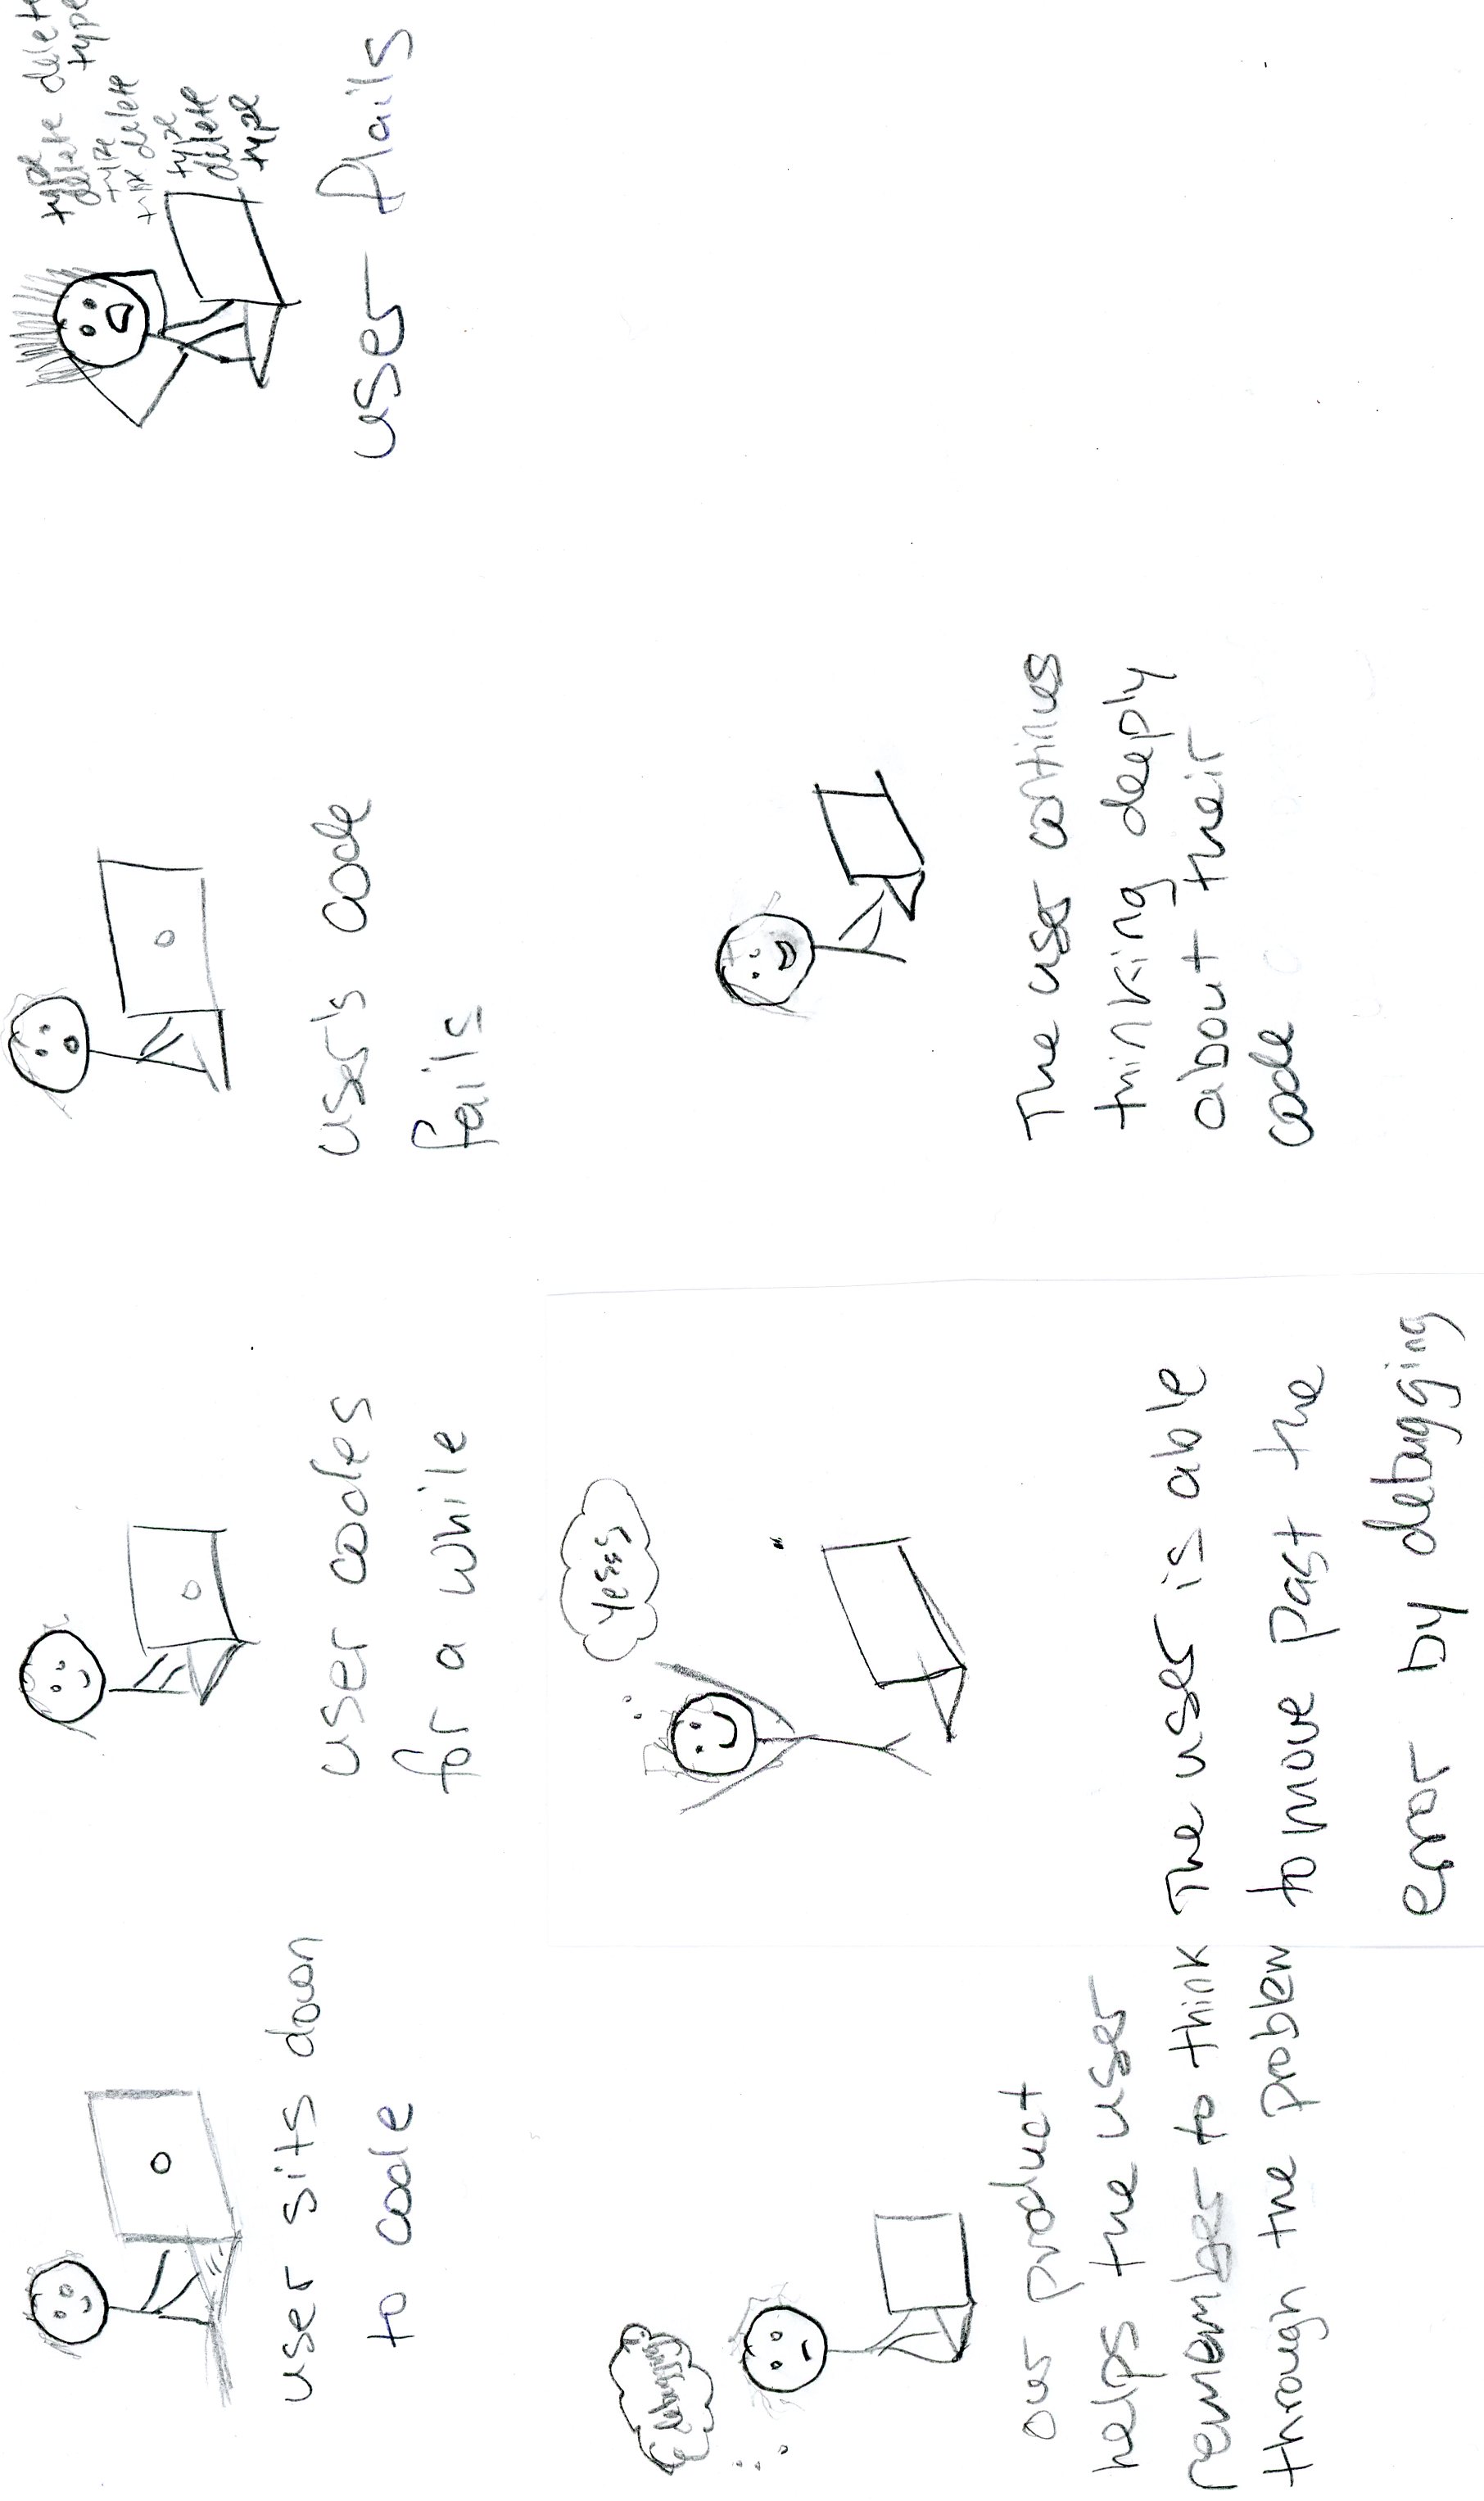 user sits down
to code
user codes
for a while
user's code
fails
type delete
delete type
type
type delete
type
delete
type
user flails
debugging
our product
helps the user
remember to think
through the problem
yesss
The user is able
to move past the
error by debugging
The user continues
thinking deeply
about their
code